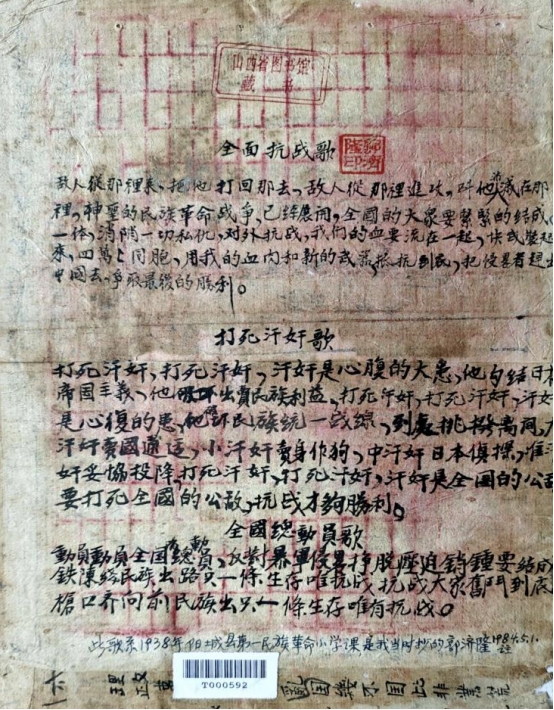 山西省图书馆
藏书
全面抗战歌
敌人從那裡来,把他打回那去,敌人從那裡進攻,叫他滅在那
裡,神聖的民族革命战争,已經展開,全國的大众要緊緊的结成
一体,消除一切私仇,对外抗战,我們的血要流在一起,快武装起
來,四萬万同胞,用我的血肉和新的武器,抵抗到底,把侵畧者趕出
中國去,爭取最後的勝利。
打死汗奸歌
打死汗奸,打死汗奸,汗奸是心腹的大患,他勾结日本
帝國主義,他出賣民族利益,打死汗奸,打死汗奸,汗奸
是心復的患,他民族统一战線,到處挑撥离间,大
汗奸賣國通,小汗奸賣身作狗,中汗奸日本偵探,准汗
奸妥協投降,打死汗奸,打死汗奸,汗奸是全国的公敌
要打死全國的公敌,抗战才夠勝利。
全國總動員歌
動員動員全国總動員,反對暴軍侵畧掙脱壓迫要结成
铁陳民族出路只一條生存唯抗战,抗战大家奮鬥到底
槍口齐向前民族出只一條生存唯有抗战。
此歌系1938年阳城县第一民族革命小学課是我当时抄的郭济隆1984.5.1.
T000592